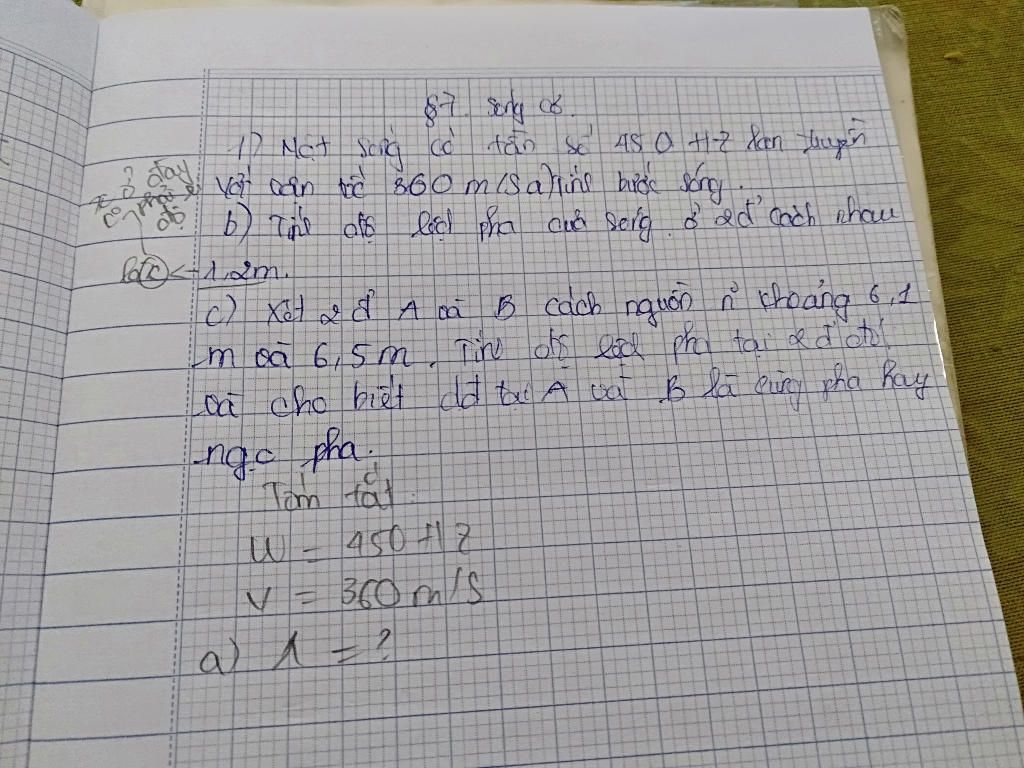 §7. sóng cơ.
1) Một sóng có tần số 450 Hz lan truyền
với vận tốc 360 m/s a) Tính bước sóng.
b) Tính độ lệch pha của sóng ở 2 đ' cách nhau
1,2m.
c) Xét 2 đ' A và B cách nguồn n~ khoảng 6,1
m và 6,5m. Tính độ lệch pha tại 2 đ' đó
và cho biết dđ tại A và B là cùng pha hay
ngc pha.
Tóm tắt
W = 450 Hz
V = 360 m/s
a) λ = ?
ở đây
độ